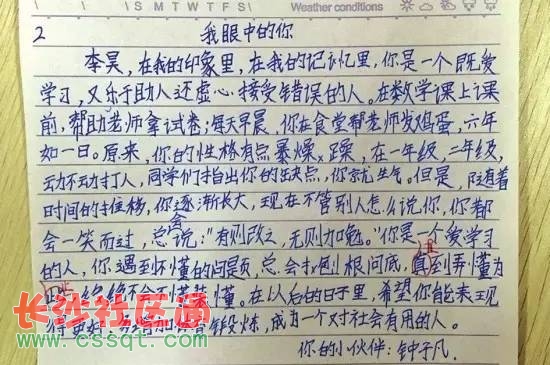 S M T W T F S Weather conditions
2 我眼中的你
李昊，在我的印象里，在我的记忆里，你是一个既爱
学习，又乐于助人还虚心接受错误的人。在数学课上课
前，帮助老师拿试卷；每天早晨，你在食堂帮老师发鸡蛋，六年
如一日。原来，你的性格有点暴燥、躁，在一年级，二年级，
动不动打人，同学们指出你的缺点，你就生气。但是，随着
时间的推移，你逐渐长大，现在不管别人怎么说你，你都
会一笑而过，总会说："有则改之，无则加勉。"你是一个爱学习
的人，你遇到不懂的问题，总会打刨根问底，直到弄懂为
止 绝不会不懂装懂。在以后的日子里，希望你能表现
得更好，多增加体育锻炼，成为一个对社会有用的人。
你的小伙伴：钟子凡.
长沙社区通
www.cssqt.com